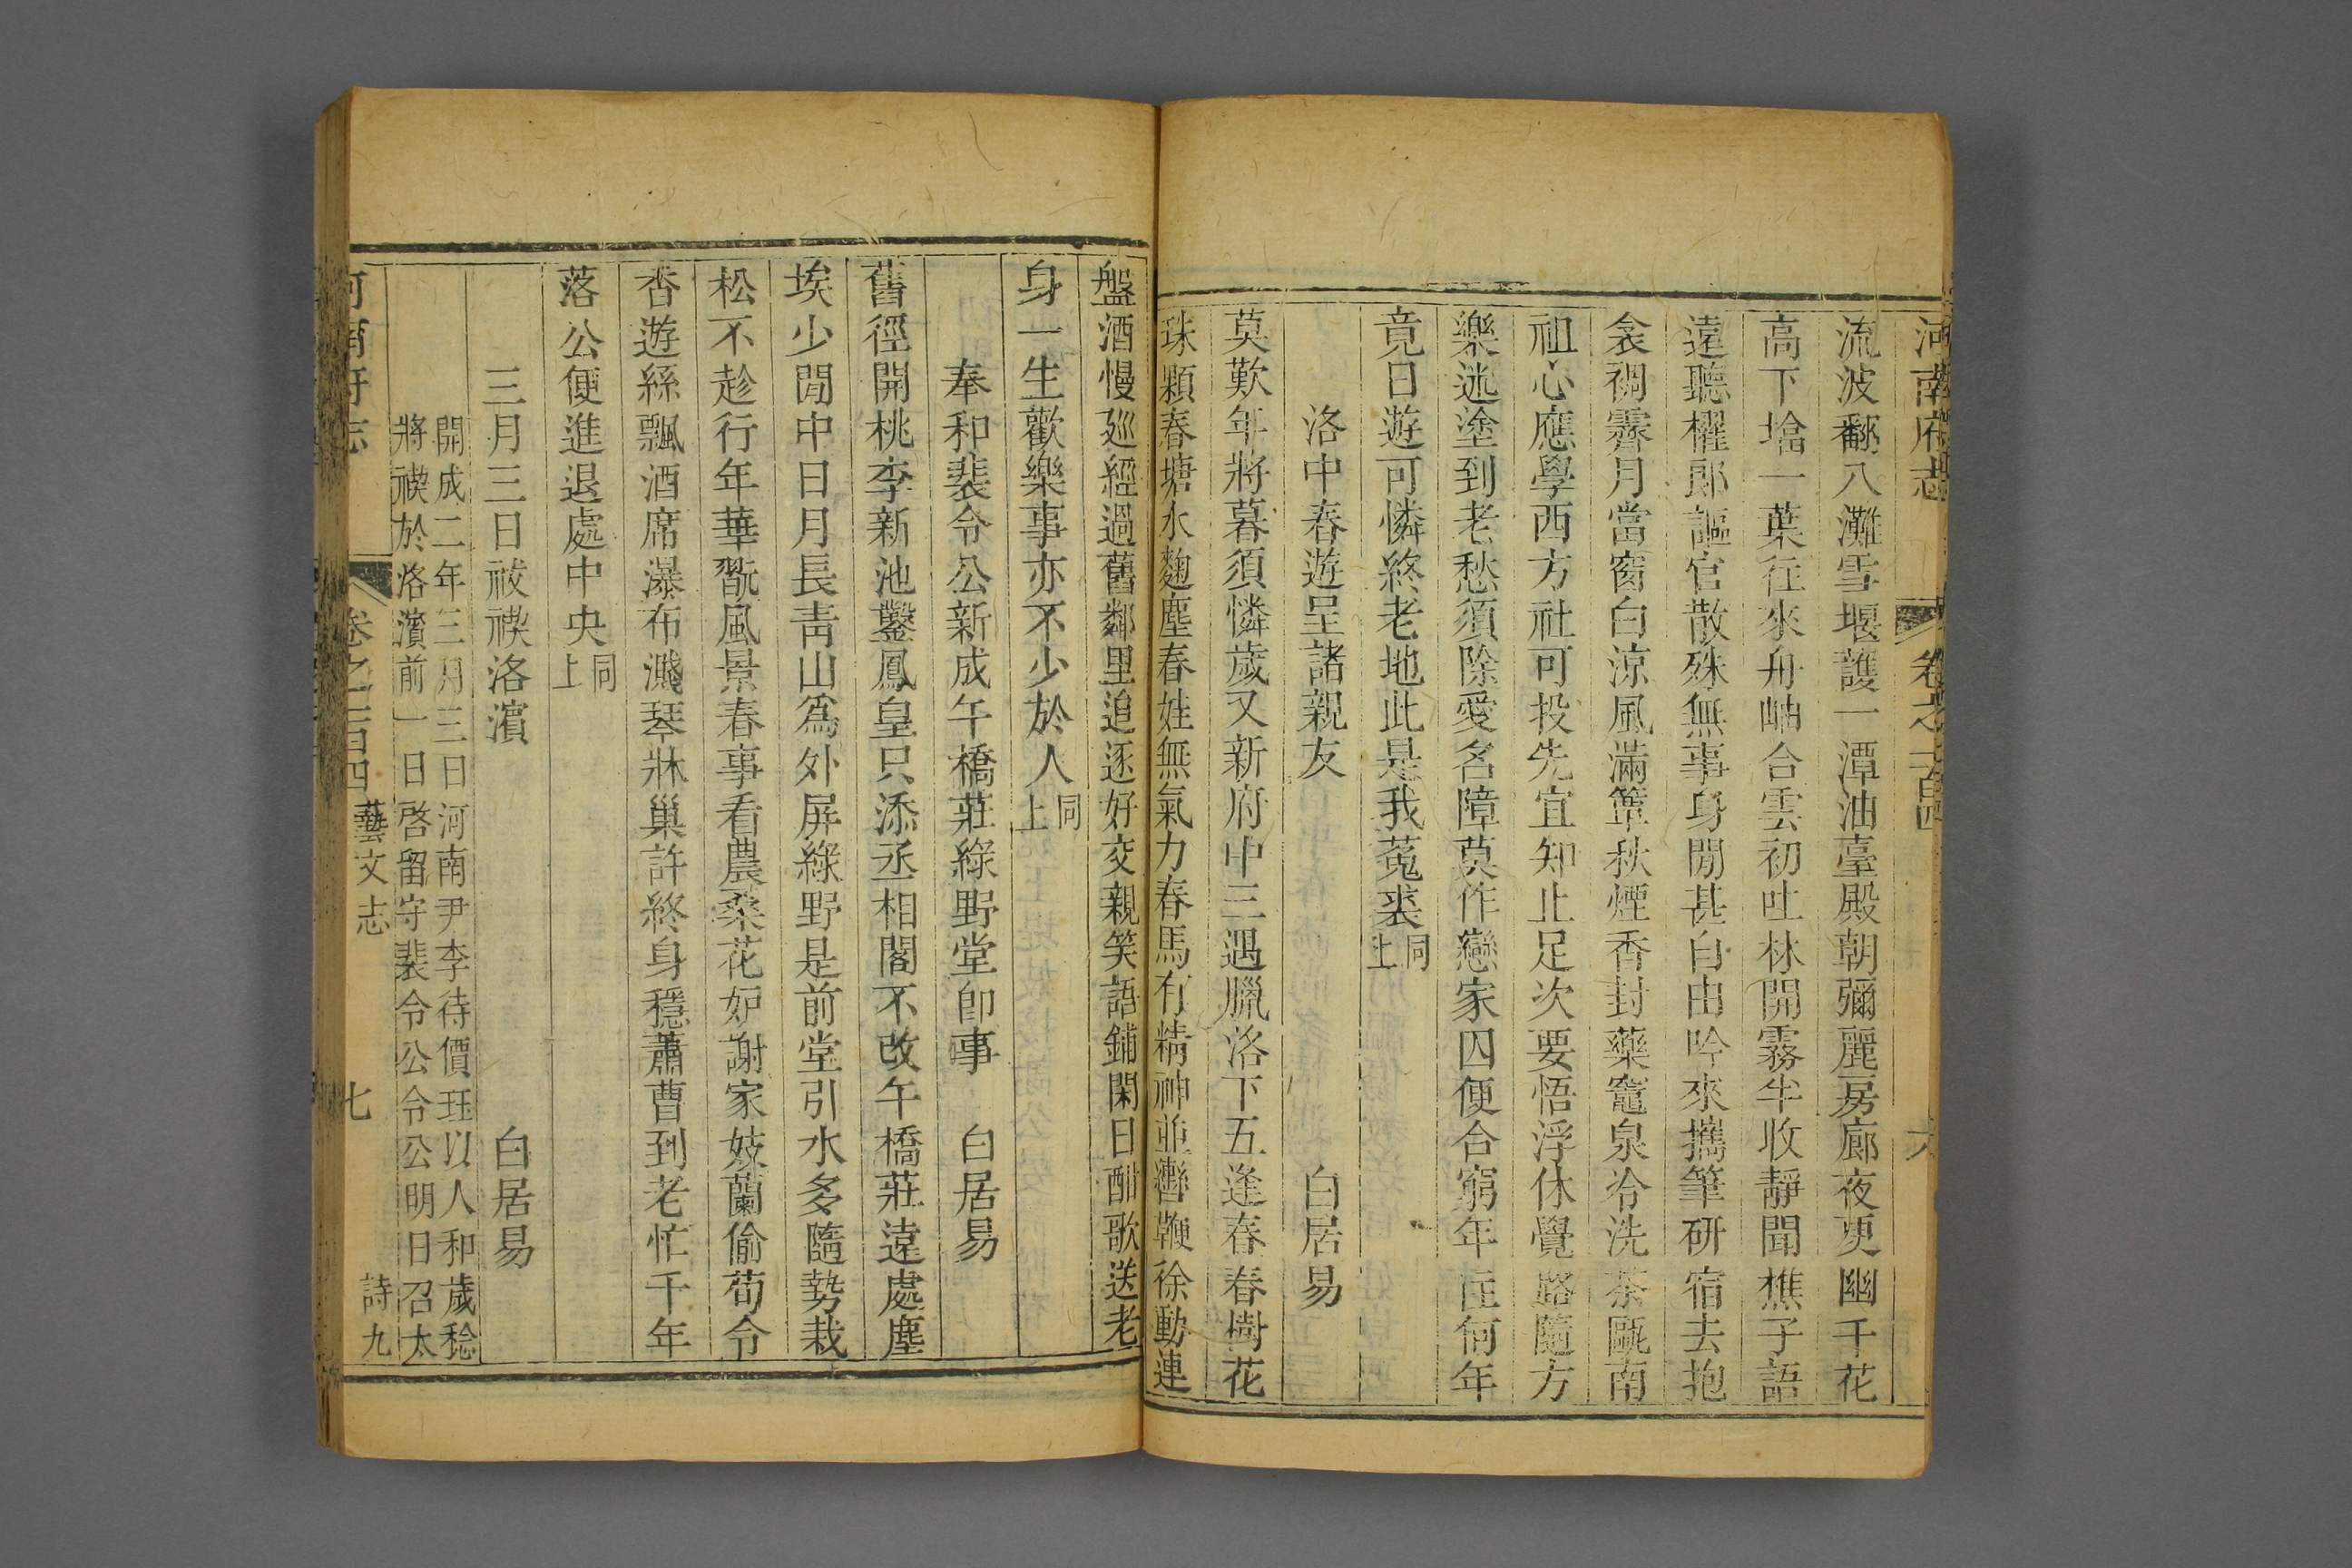 河南府志 卷之一百四 六
流波翻八灘雪堰護一潭油臺殿朝彌麗房廊夜更幽千花
高下墖一葉往來舟岫合雲初吐林開霧半收靜聞樵子語
遠聽櫂郎謳官散殊無事身閒甚自由吟來攜筆研宿去抱
衾裯霽月當窗白涼風滿簟秋煙香封藥竈泉冷洗茶甌南
祖心應學西方社可投先宜知止足次要悟浮休覺路隨方
樂迷塗到老愁須除愛名障莫作戀家囚便合窮年住何年
竟日遊可憐終老地此是我菟裘同上
洛中春遊呈諸親友 白居易
莫歎年將暮須憐歲又新府中三遇臘洛下五逢春春樹花
珠顆春塘水麴塵春娃無氣力春馬有精神並轡鞭徐動連
盤酒慢廵經過舊鄰里追逐好交親笑語鋪閑日酣歌送老
身一生歡樂事亦不少於人同上
奉和裴令公新成午橋莊綠野堂卽事 白居易
舊徑開桃李新池鑿鳳皇只添丞相閣不改午橋莊遠處塵
埃少閒中日月長靑山爲外屏綠野是前堂引水多隨勢栽
松不趁行年華翫風景春事看農桑花妒謝家妓蘭偷荀令
香遊絲飄酒席瀑布濺琴牀巢許終身穩蕭曹到老忙千年
落公便進退處中央同上
三月三日祓禊洛濱 白居易
開成二年三月三日河南尹李待價珏以人和歲稔
將禊於洛濱前一日啓留守裴令公令公明日召太
河南府志 卷之一百四 藝文志 七 詩九